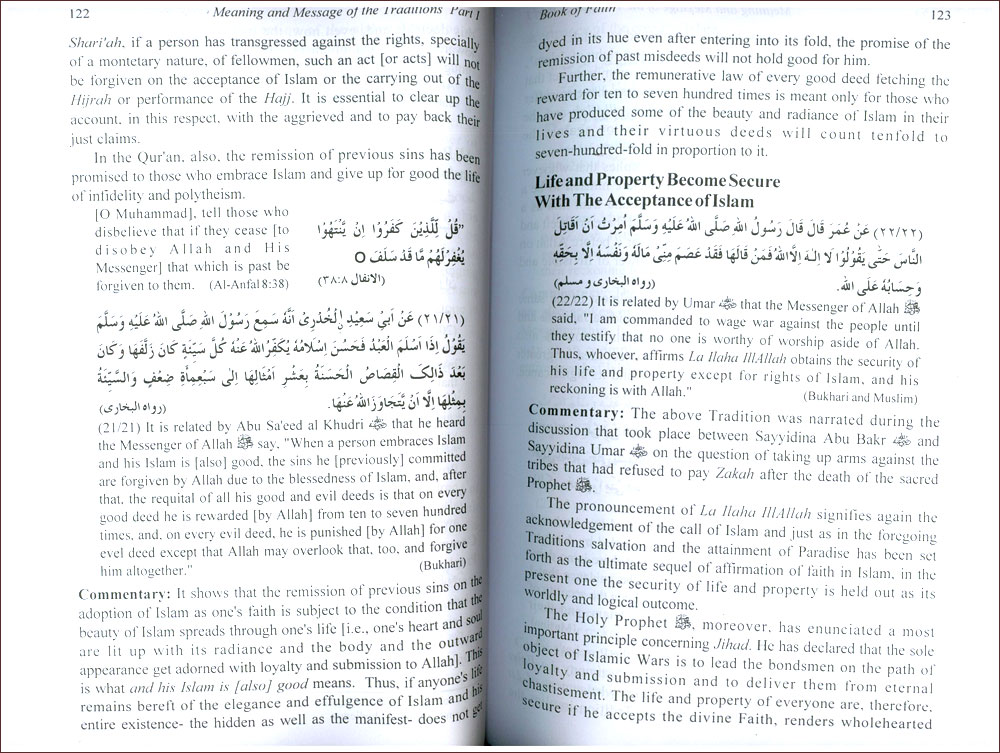 122
Meaning and Message of the Traditions Part I
Shari'ah, if a person has transgressed against the rights, specially
of a montetary nature, of fellowmen, such an act [or acts] will not
be forgiven on the acceptance of Islam or the carrying out of the
Hijrah or performance of the Hajj. It is essential to clear up the
account, in this respect, with the aggrieved and to pay back their
just claims.
In the Qur'an, also, the remission of previous sins has been
promised to those who embrace Islam and give up for good the life
of infidelity and polytheism.
[O Muhammad], tell those who
disbelieve that if they cease [to
disobey Allah and His
Messenger] that which is past be
forgiven to them. (Al-Anfal 8:38)
"قُلْ لِّلَّذِيْنَ كَفَرُوْا اِنْ يَّنْتَهُوْا
يُغْفَرْلَهُمْ مَّا قَدْ سَلَفَ O
(الانفال ٣٨:٨)
(٢١/٢١) عَنْ اَبِيْ سَعِيْدِ الْخُدْرِىْ اَنَّهُ سَمِعَ رَسُوْلَ اللهِ صَلَّى اللهُ عَلَيْهِ وَسَلَّمَ
يَقُوْلُ اِذَا اَسْلَمَ الْعَبْدُ فَحَسُنَ اِسْلَامُهُ يُكَفِّرُ اللهُ عَنْهُ كُلَّ سَيِّئَةٍ كَانَ زَلَّفَهَا وَكَانَ
بَعْدَ ذَالِكَ الْقِصَاصُ الْحَسَنَةُ بِعَشْرِ اَمْثَالِهَا اِلٰى سَبْعِمِأَةِ ضِعْفٍ وَالسَّيِّئَةُ
بِمِثْلِهَا اِلَّا اَنْ يَّتَجَاوَزَ اللهُ عَنْهَا.
(رواه البخارى)
(21/21) It is related by Abu Sa'eed al Khudri that he heard
the Messenger of Allah ﷺ say, "When a person embraces Islam
and his Islam is [also] good, the sins he [previously] committed
are forgiven by Allah due to the blessedness of Islam, and, after
that, the requital of all his good and evil deeds is that on every
good deed he is rewarded [by Allah] from ten to seven hundred
times, and, on every evil deed, he is punished [by Allah] for one
evel deed except that Allah may overlook that, too, and forgive
him altogether."
(Bukhari)
Commentary: It shows that the remission of previous sins on the
adoption of Islam as one's faith is subject to the condition that the
beauty of Islam spreads through one's life [i.e., one's heart and soul
are lit up with its radiance and the body and the outward
appearance get adorned with loyalty and submission to Allah]. This
is what and his Islam is [also] good means. Thus, if anyone's life
remains bereft of the elegance and effulgence of Islam and his
entire existence- the hidden as well as the manifest- does not get
Book of Faith
123
dyed in its hue even after entering into its fold, the promise of the
remission of past misdeeds will not hold good for him.
Further, the remunerative law of every good deed fetching the
reward for ten to seven hundred times is meant only for those who
have produced some of the beauty and radiance of Islam in their
lives and their virtuous deeds will count tenfold to
seven-hundred-fold in proportion to it.
Life and Property Become Secure
With The Acceptance of Islam
(٢٢/٢٢) عَنْ عُمَرَ قَالَ قَالَ رَسُوْلُ اللهِ صَلَّى اللهُ عَلَيْهِ وَسَلَّمَ اُمِرْتُ اَنْ اُقَاتِلَ
النَّاسَ حَتّٰى يَقُوْلُوْا لَا اِلٰهَ اِلَّا اللهُ فَمَنْ قَالَهَا فَقَدْ عَصَمَ مِنِّىْ مَالَهُ وَنَفْسَهُ اِلَّا بِحَقِّهٖ
وَحِسَابُهُ عَلَى اللهِ.
(رواه البخارى و مسلم)
(22/22) It is related by Umar that the Messenger of Allah ﷺ
said, "I am commanded to wage war against the people until
they testify that no one is worthy of worship aside of Allah.
Thus, whoever, affirms La Ilaha IllAllah obtains the security of
his life and property except for rights of Islam, and his
reckoning is with Allah."
(Bukhari and Muslim)
Commentary: The above Tradition was narrated during the
discussion that took place between Sayyidina Abu Bakr and
Sayyidina Umar on the question of taking up arms against the
tribes that had refused to pay Zakah after the death of the sacred
Prophet ﷺ.
The pronouncement of La Ilaha IllAllah signifies again the
acknowledgement of the call of Islam and just as in the foregoing
Traditions salvation and the attainment of Paradise has been set
forth as the ultimate sequel of affirmation of faith in Islam, in the
present one the security of life and property is held out as its
worldly and logical outcome.
The Holy Prophet ﷺ, moreover, has enunciated a most
important principle concerning Jihad. He has declared that the sole
object of Islamic Wars is to lead the bondsmen on the path of
loyalty and submission and to deliver them from eternal
chastisement. The life and property of everyone are, therefore,
secure if he accepts the divine Faith, renders wholehearted